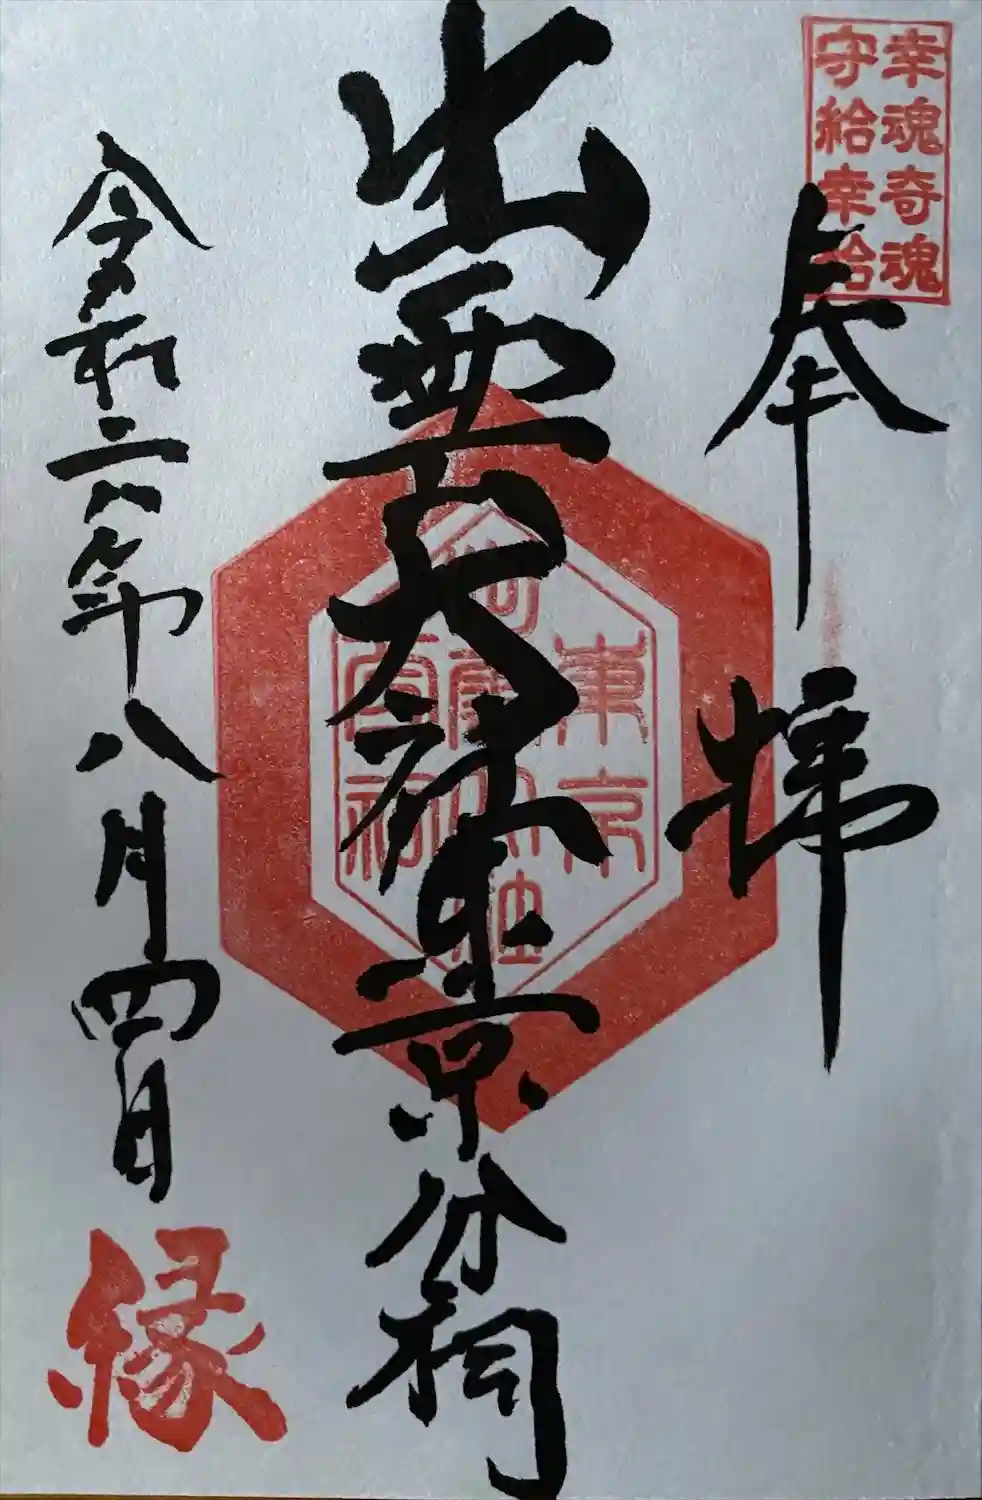 幸魂奇魂
守給幸給
奉拝
出雲大社東京分祠
東京
令和六年八月四日
縁